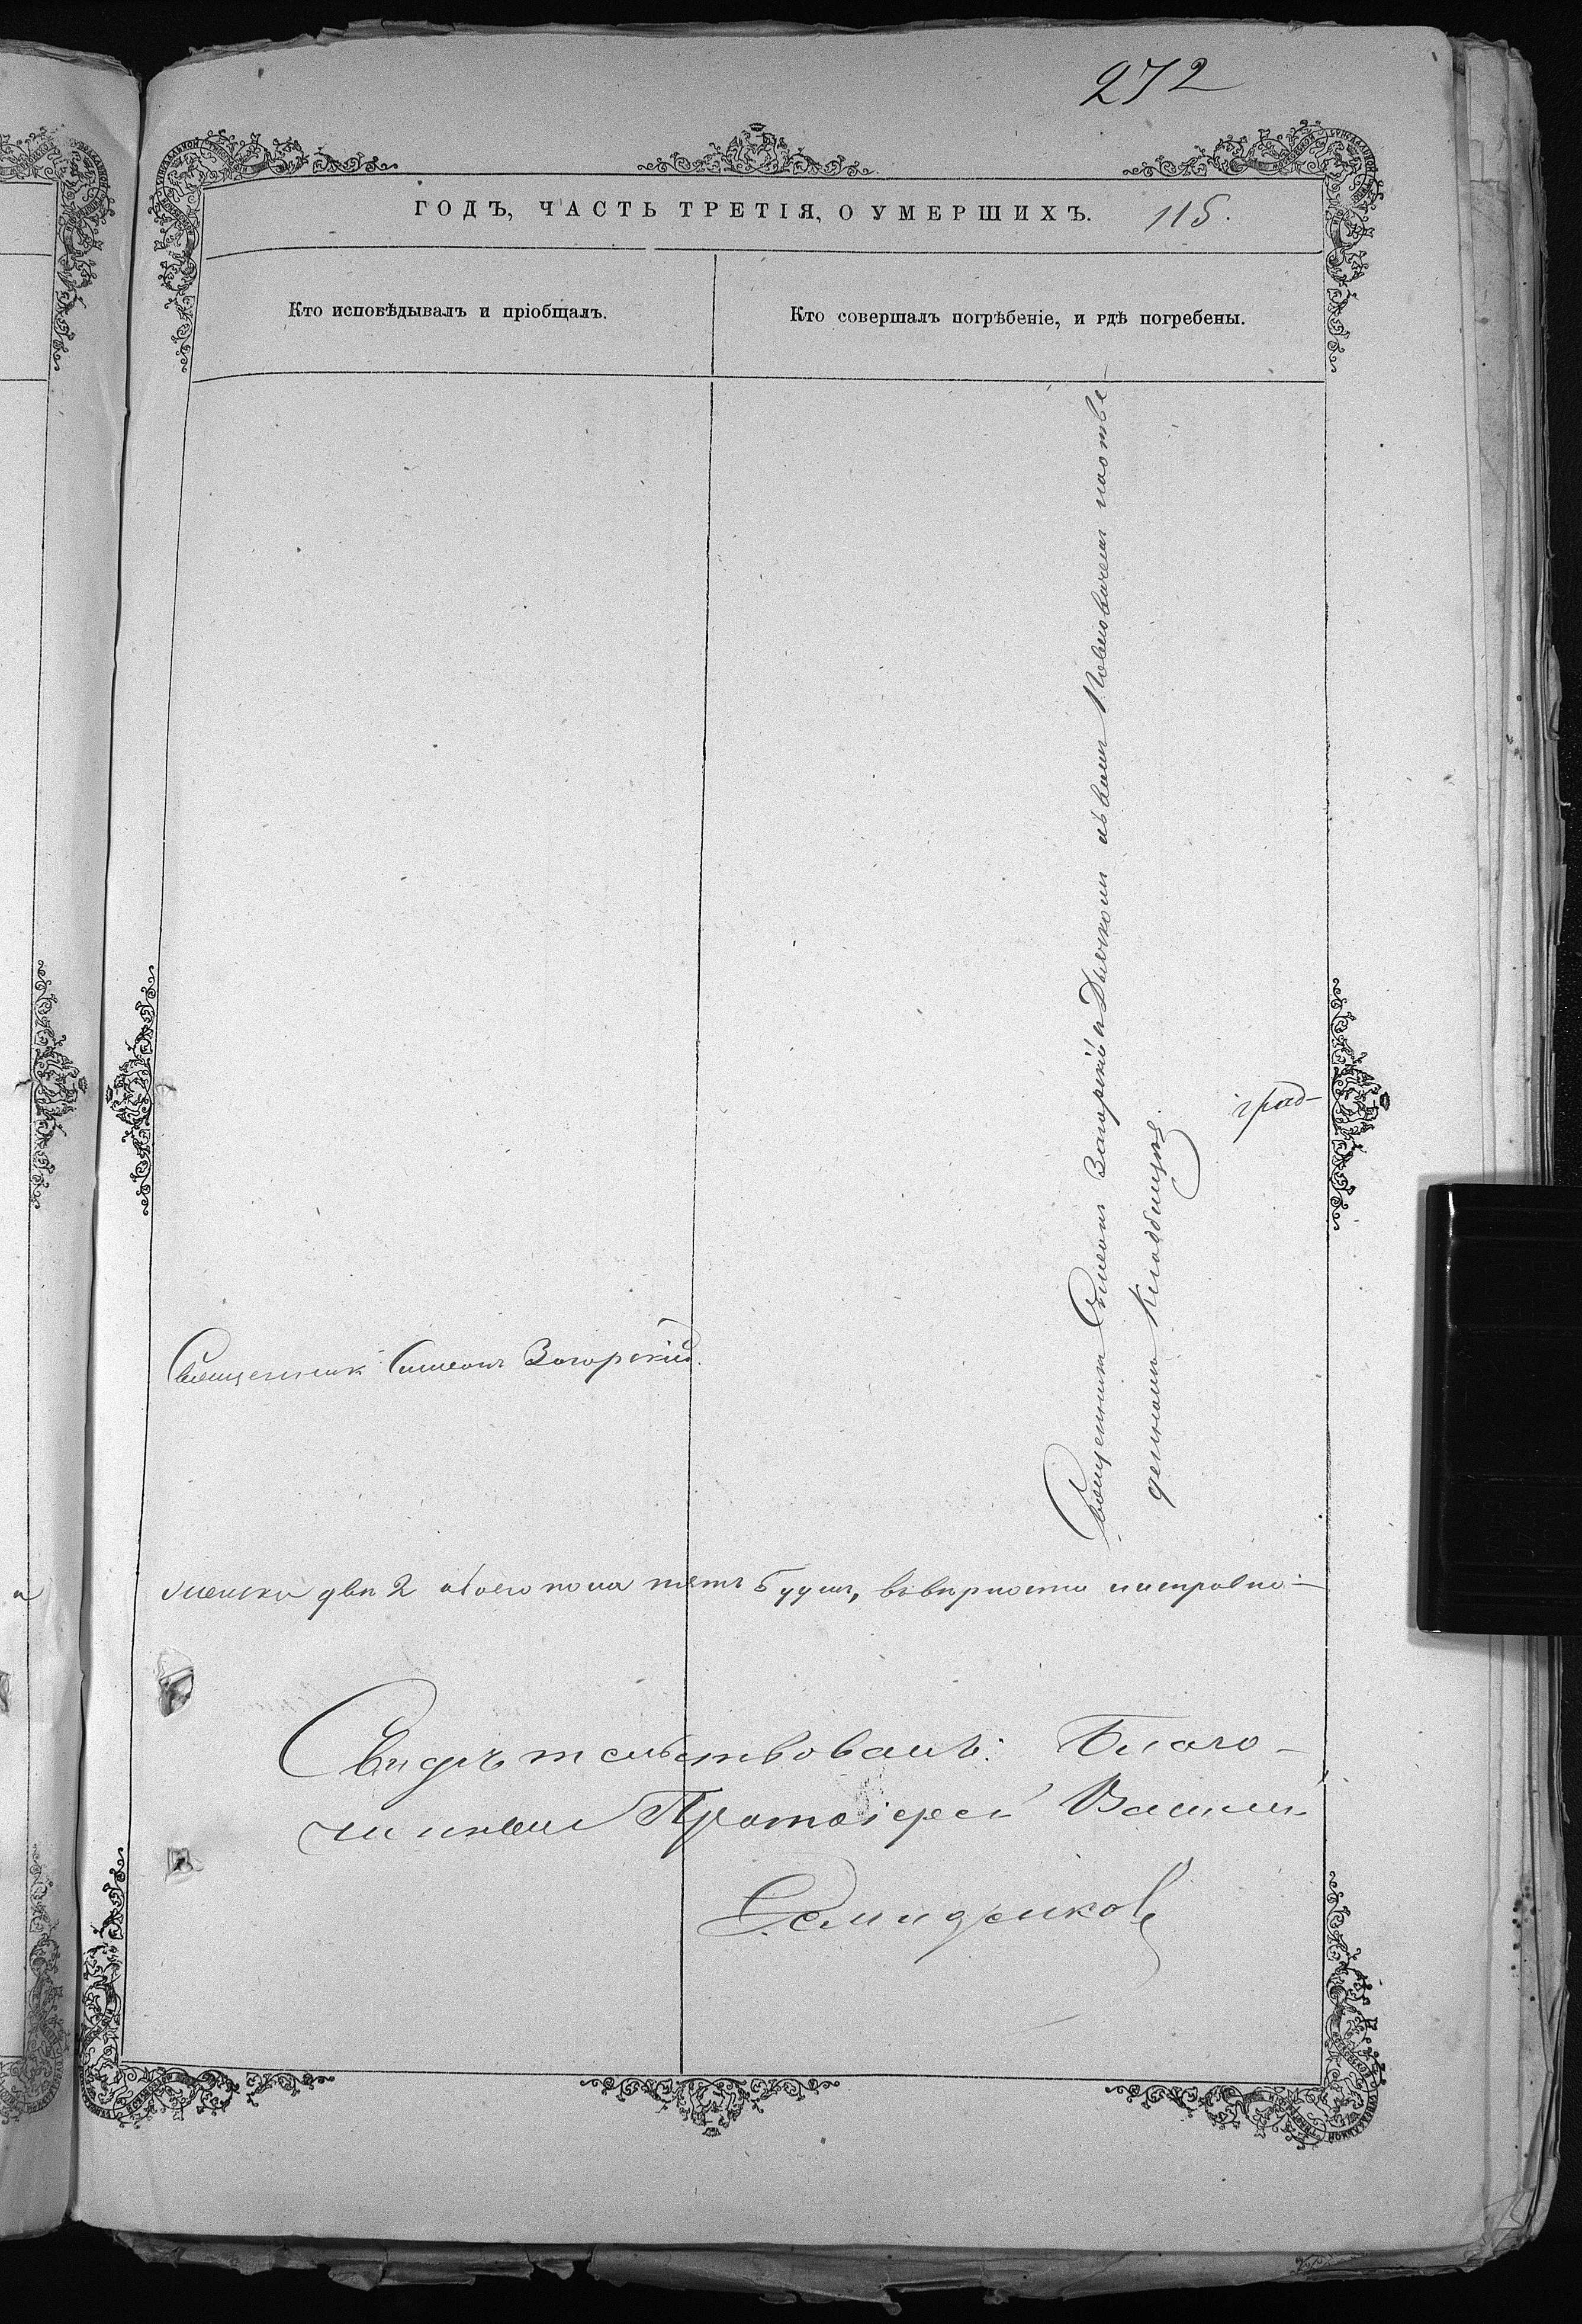 272
ГОДЪ, ЧАСТЬ ТРЕТІЯ, О УМЕРШИХЪ. 115.
Кто исповѣдывалъ и пріобщалъ.
Кто совершалъ погрѣбеніе, и гдѣ погребены.
Священникъ Симеонъ Загорскій.
Священникъ Симеонъ Загорскій и Дьячкомъ на отве-
денномъ Кладбищѣ.
град-
женска двѣ 2 обоего пола пять 5 душъ, вѣрности и исправно-
Свидѣтельствовалъ: Благо-
чинный Протоіерей Василій